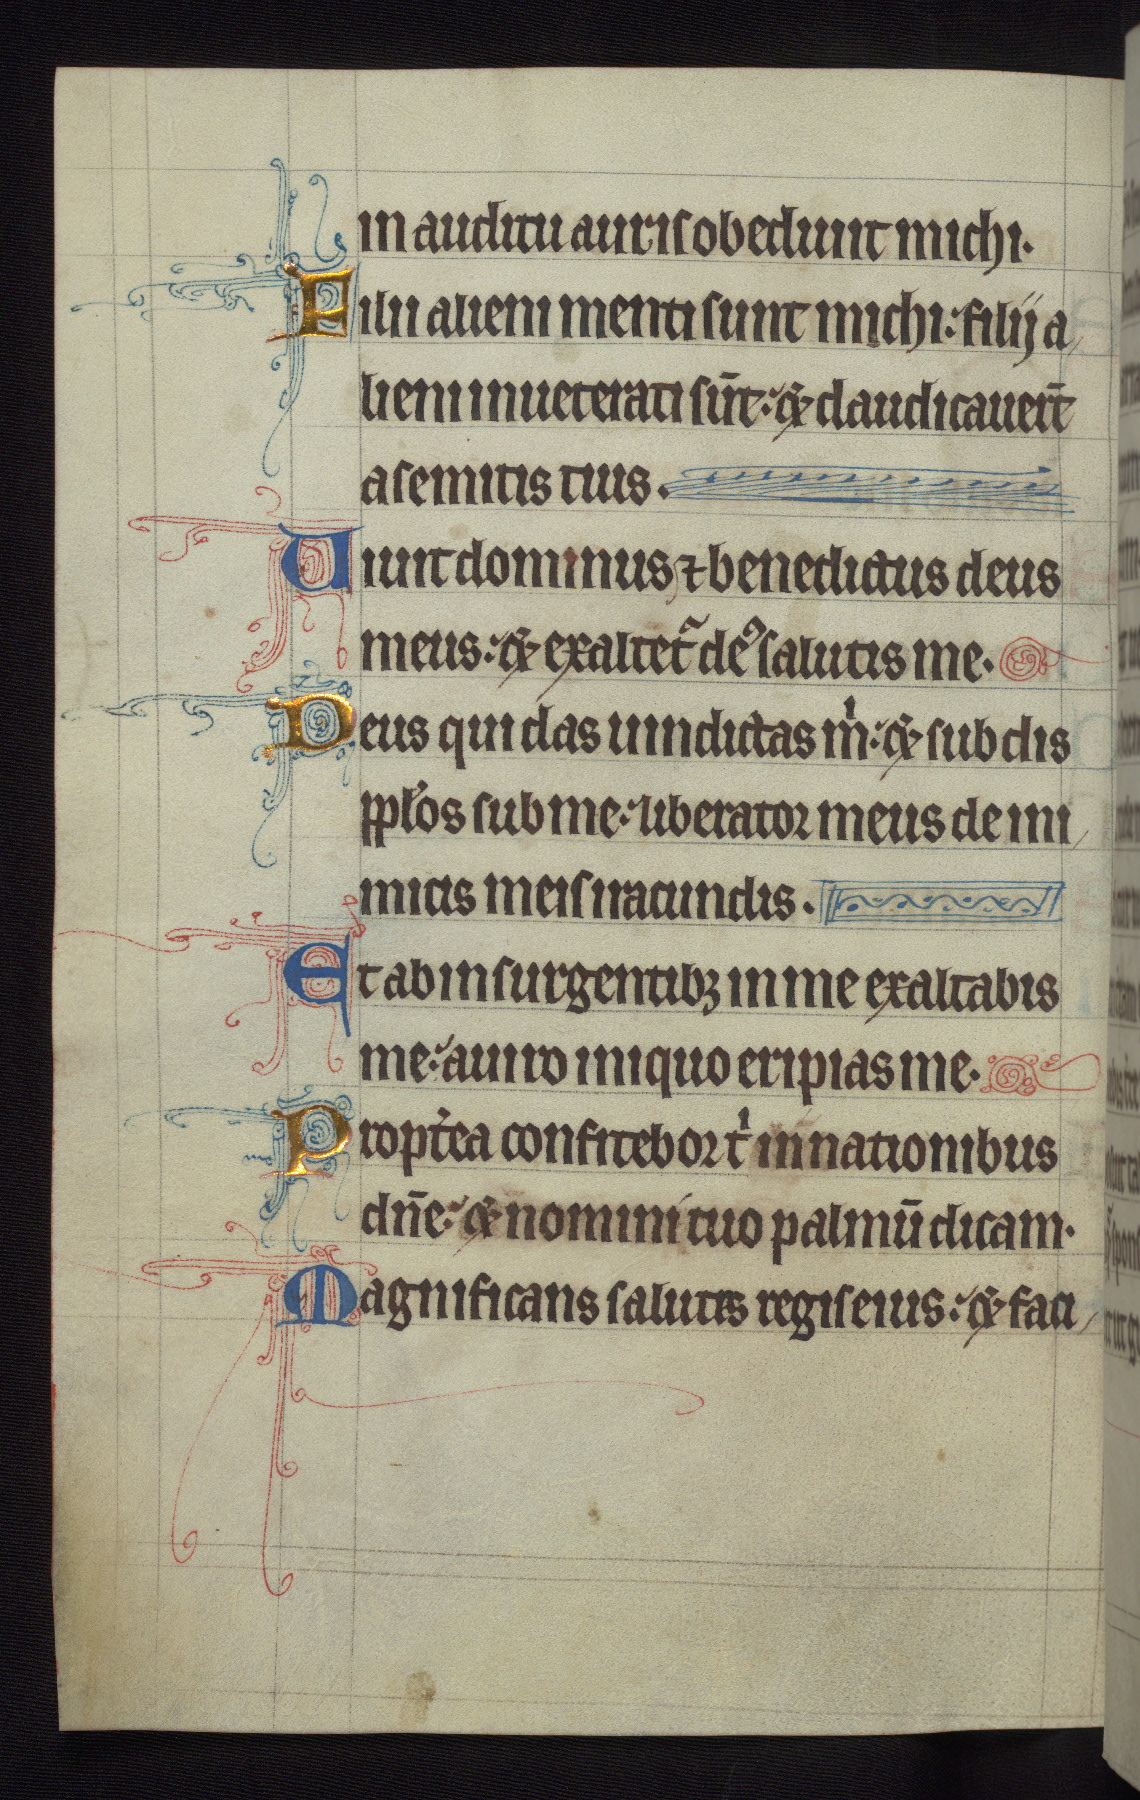 in auditu auris obedunt michi.
Filii alieni mentiti sunt michi: filij a
lieni inueterati sūt: & claudicauerūt
a semitis tuis.
Uiuit dominus ⁊ benedictus deus
meus: & exaltet᷑ deꝰ salutis me.
Deus qui das uindictas m̍: & subdis
pplōs sub me: liberator meus de ini
micis meis iracundis.
Et ab insurgentibꝫ in me exaltabis
me: a uiro iniquo eripias me.
Propt̍ea confitebor t̍ in nationibus
dn̄e: & nomini tuo palmū dicam.
Magnificans salutes regis eius: & faci